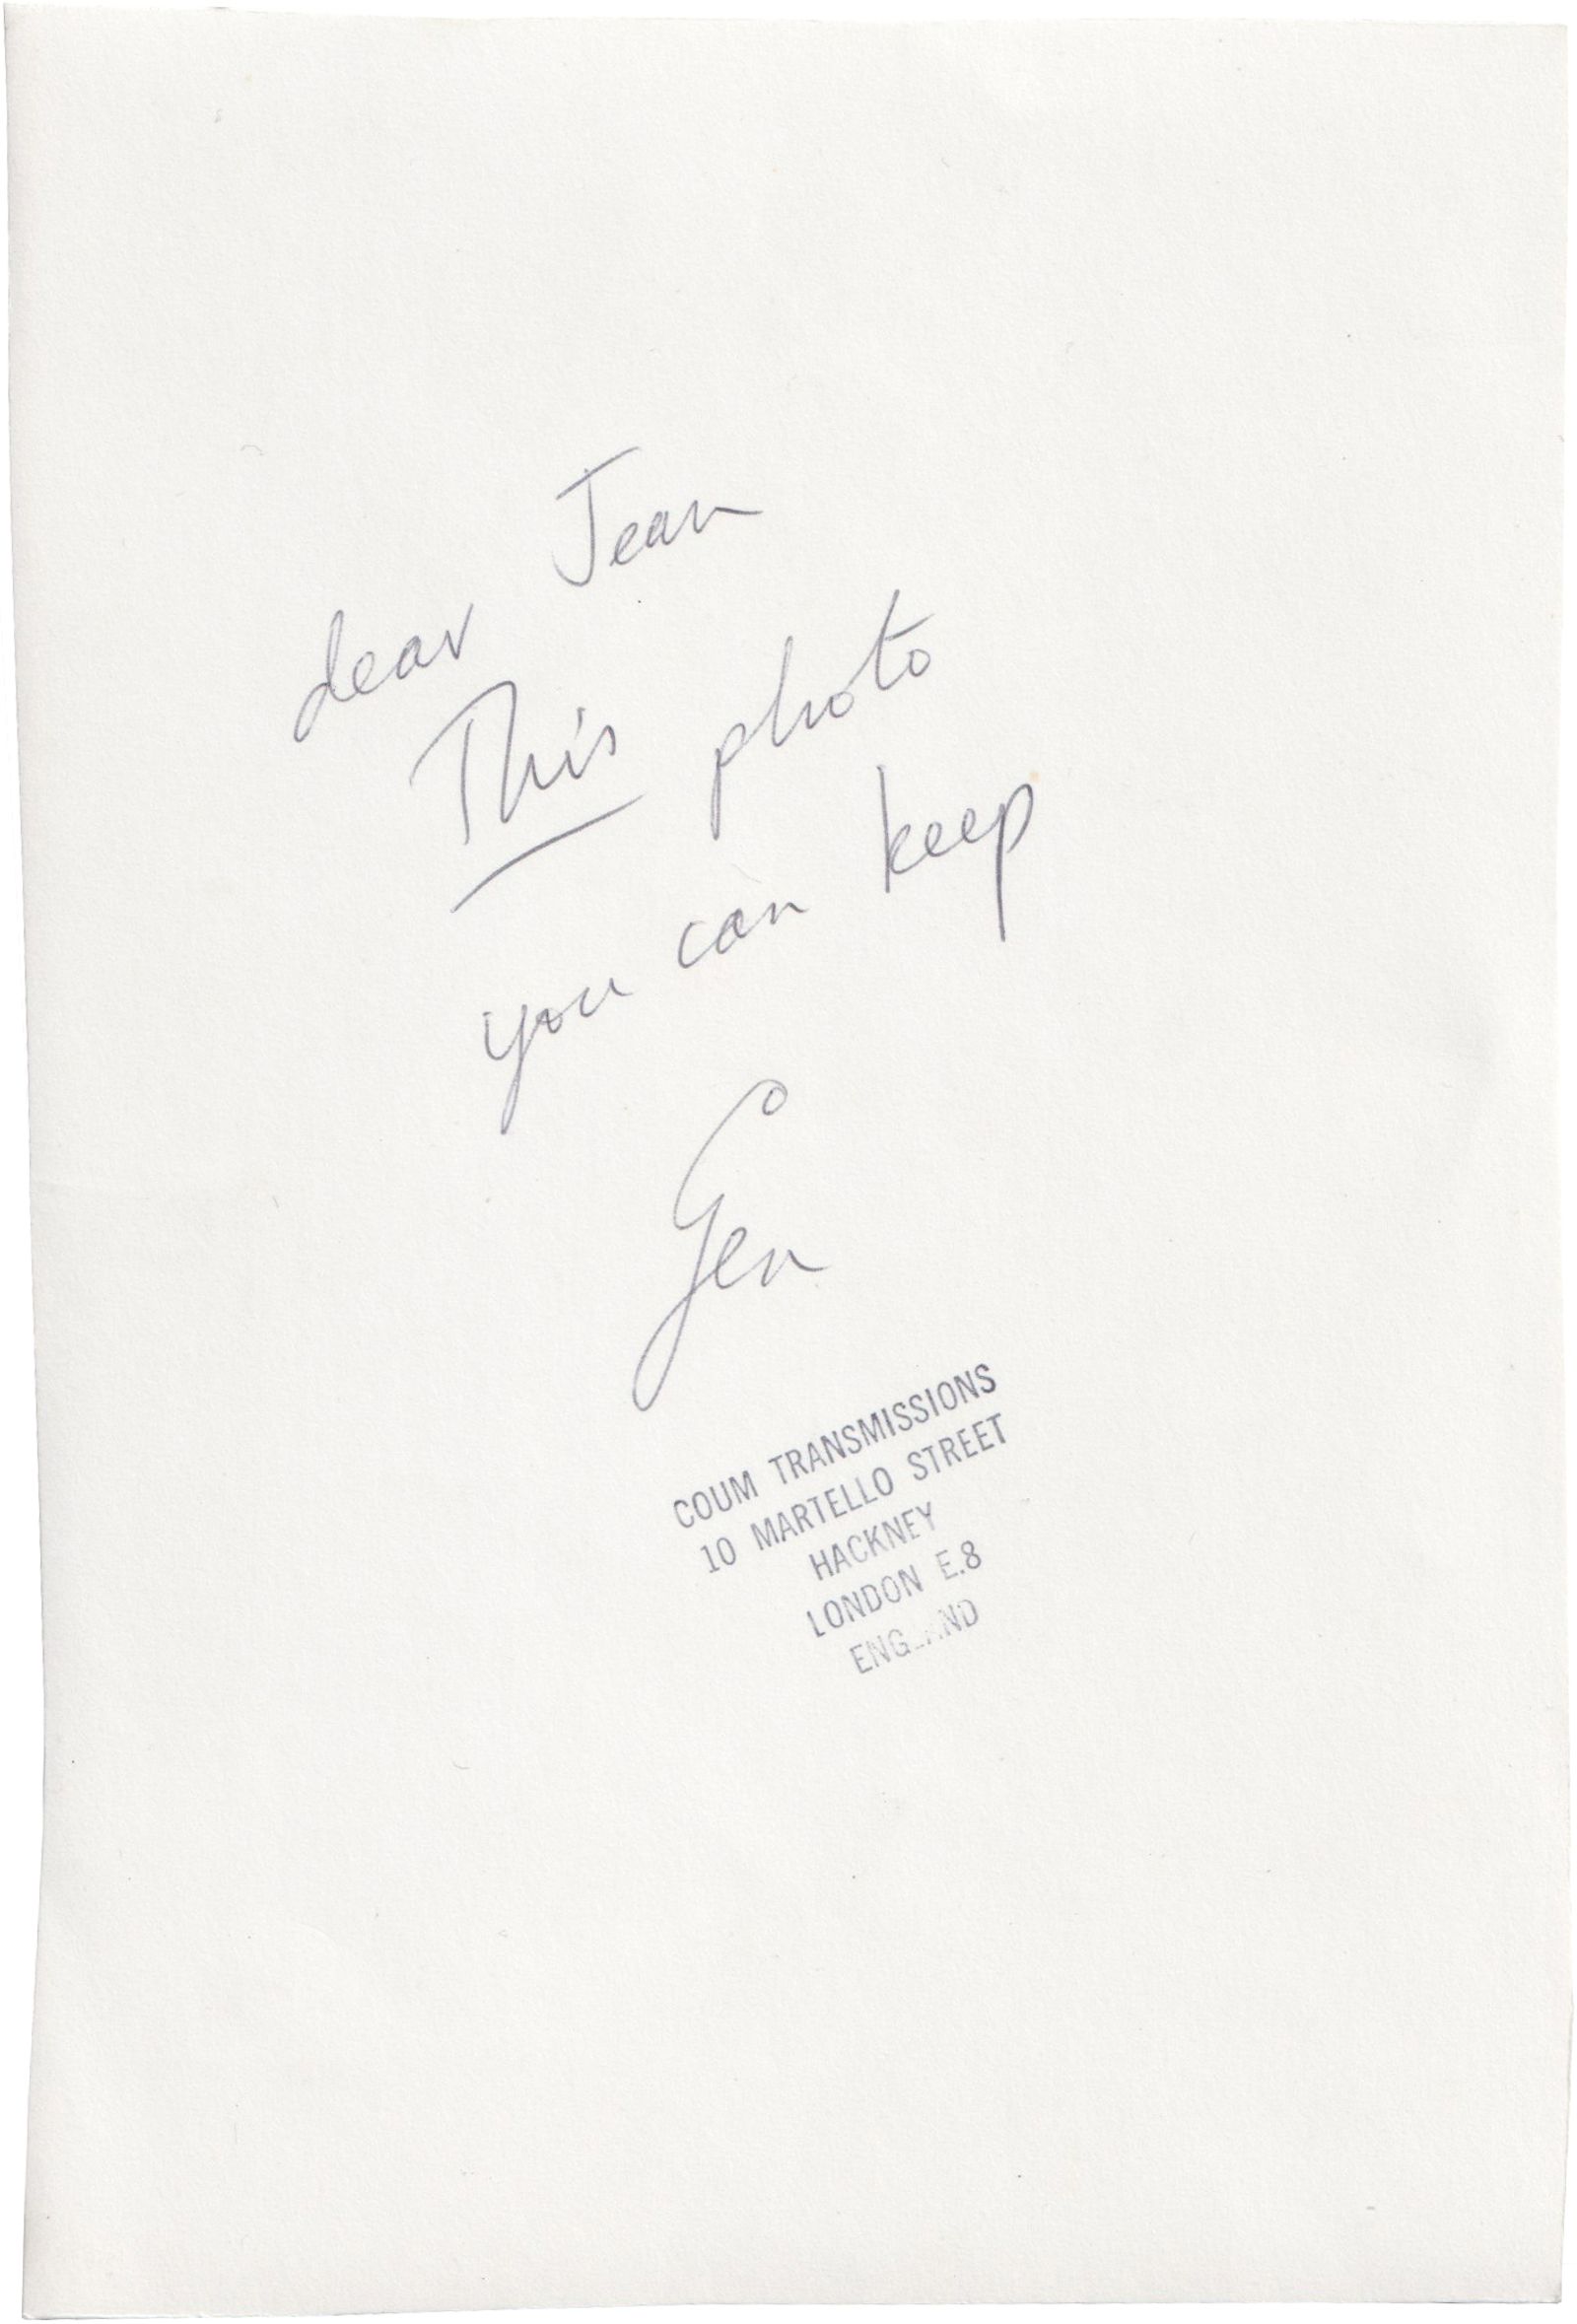 dear Jean
This photo
you can keep
Gen
COUM TRANSMISSIONS
10 MARTELLO STREET
HACKNEY
LONDON E.8
ENGLAND